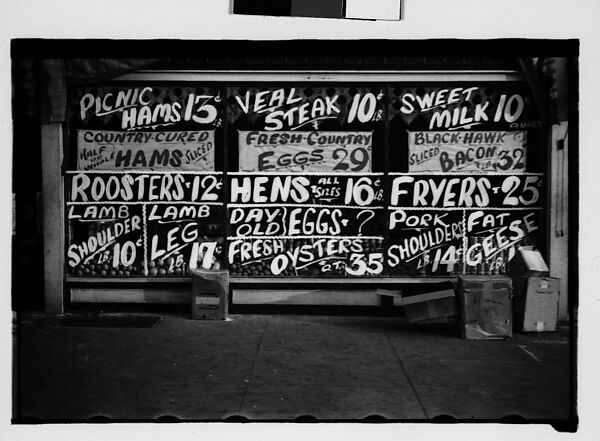 PICNIC HAMS 13¢ LB.
COUNTRY-CURED
HALF OR WHOLE HAMS SLICED
ROOSTERS·12¢ LB.
LAMB SHOULDER LB. 10¢
LAMB LEG LB. 17¢
VEAL STEAK 10¢ LB.
FRESH-COUNTRY
EGGS 29
HENS ALL SIZES 16¢ LB.
DAY OLD EGGS·?
FRESH OYSTERS QT. 35
SWEET MILK 10¢
BLACK-HAWK
SLICED BACON 32
FRYERS 25¢
PORK SHOULDERS LB. 14¢
FAT GEESE LB.